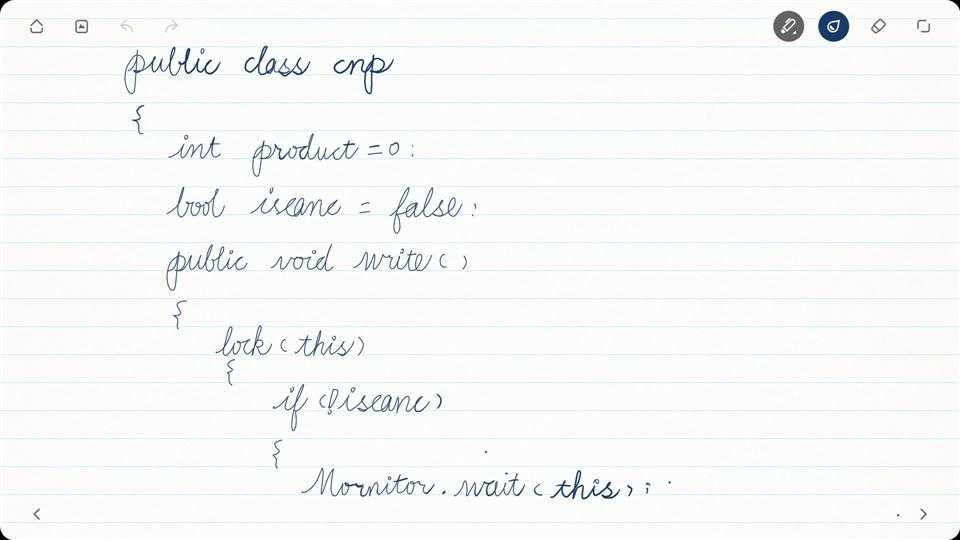 public class cnp
{
int product = 0 :
bool iscanc = false :
public void write ( )
{
lock ( this )
{
if ( ! iscanc )
{
Mornitor . wait ( this ) ;